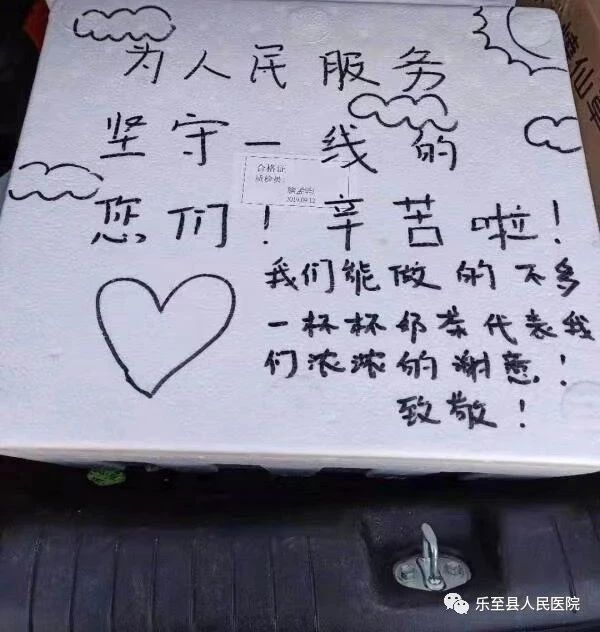 为人民服务
坚守一线的
合格证
质检员:
2019.09.12
您们!辛苦啦!
我们能做的不多
一杯杯奶茶代表我
们浓浓的谢意!
致敬!
乐至县人民医院